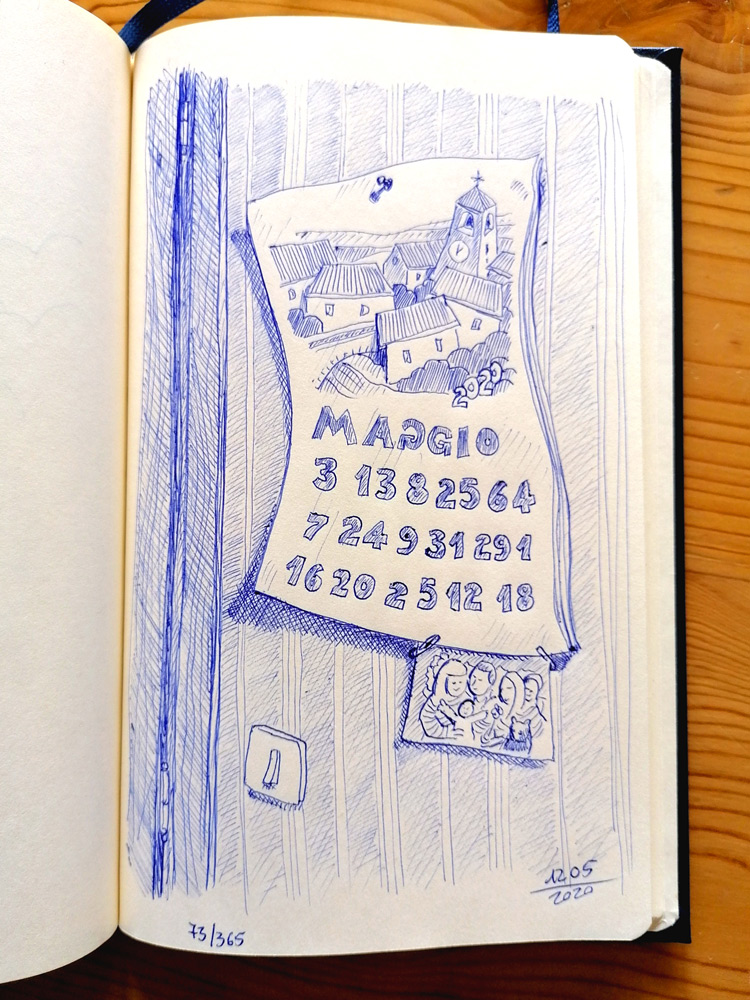 2020
MAGGIO
3 13 8 25 6 4
7 24 9 31 29 1
16 20 2 5 12 18
12 05
2020
73/365